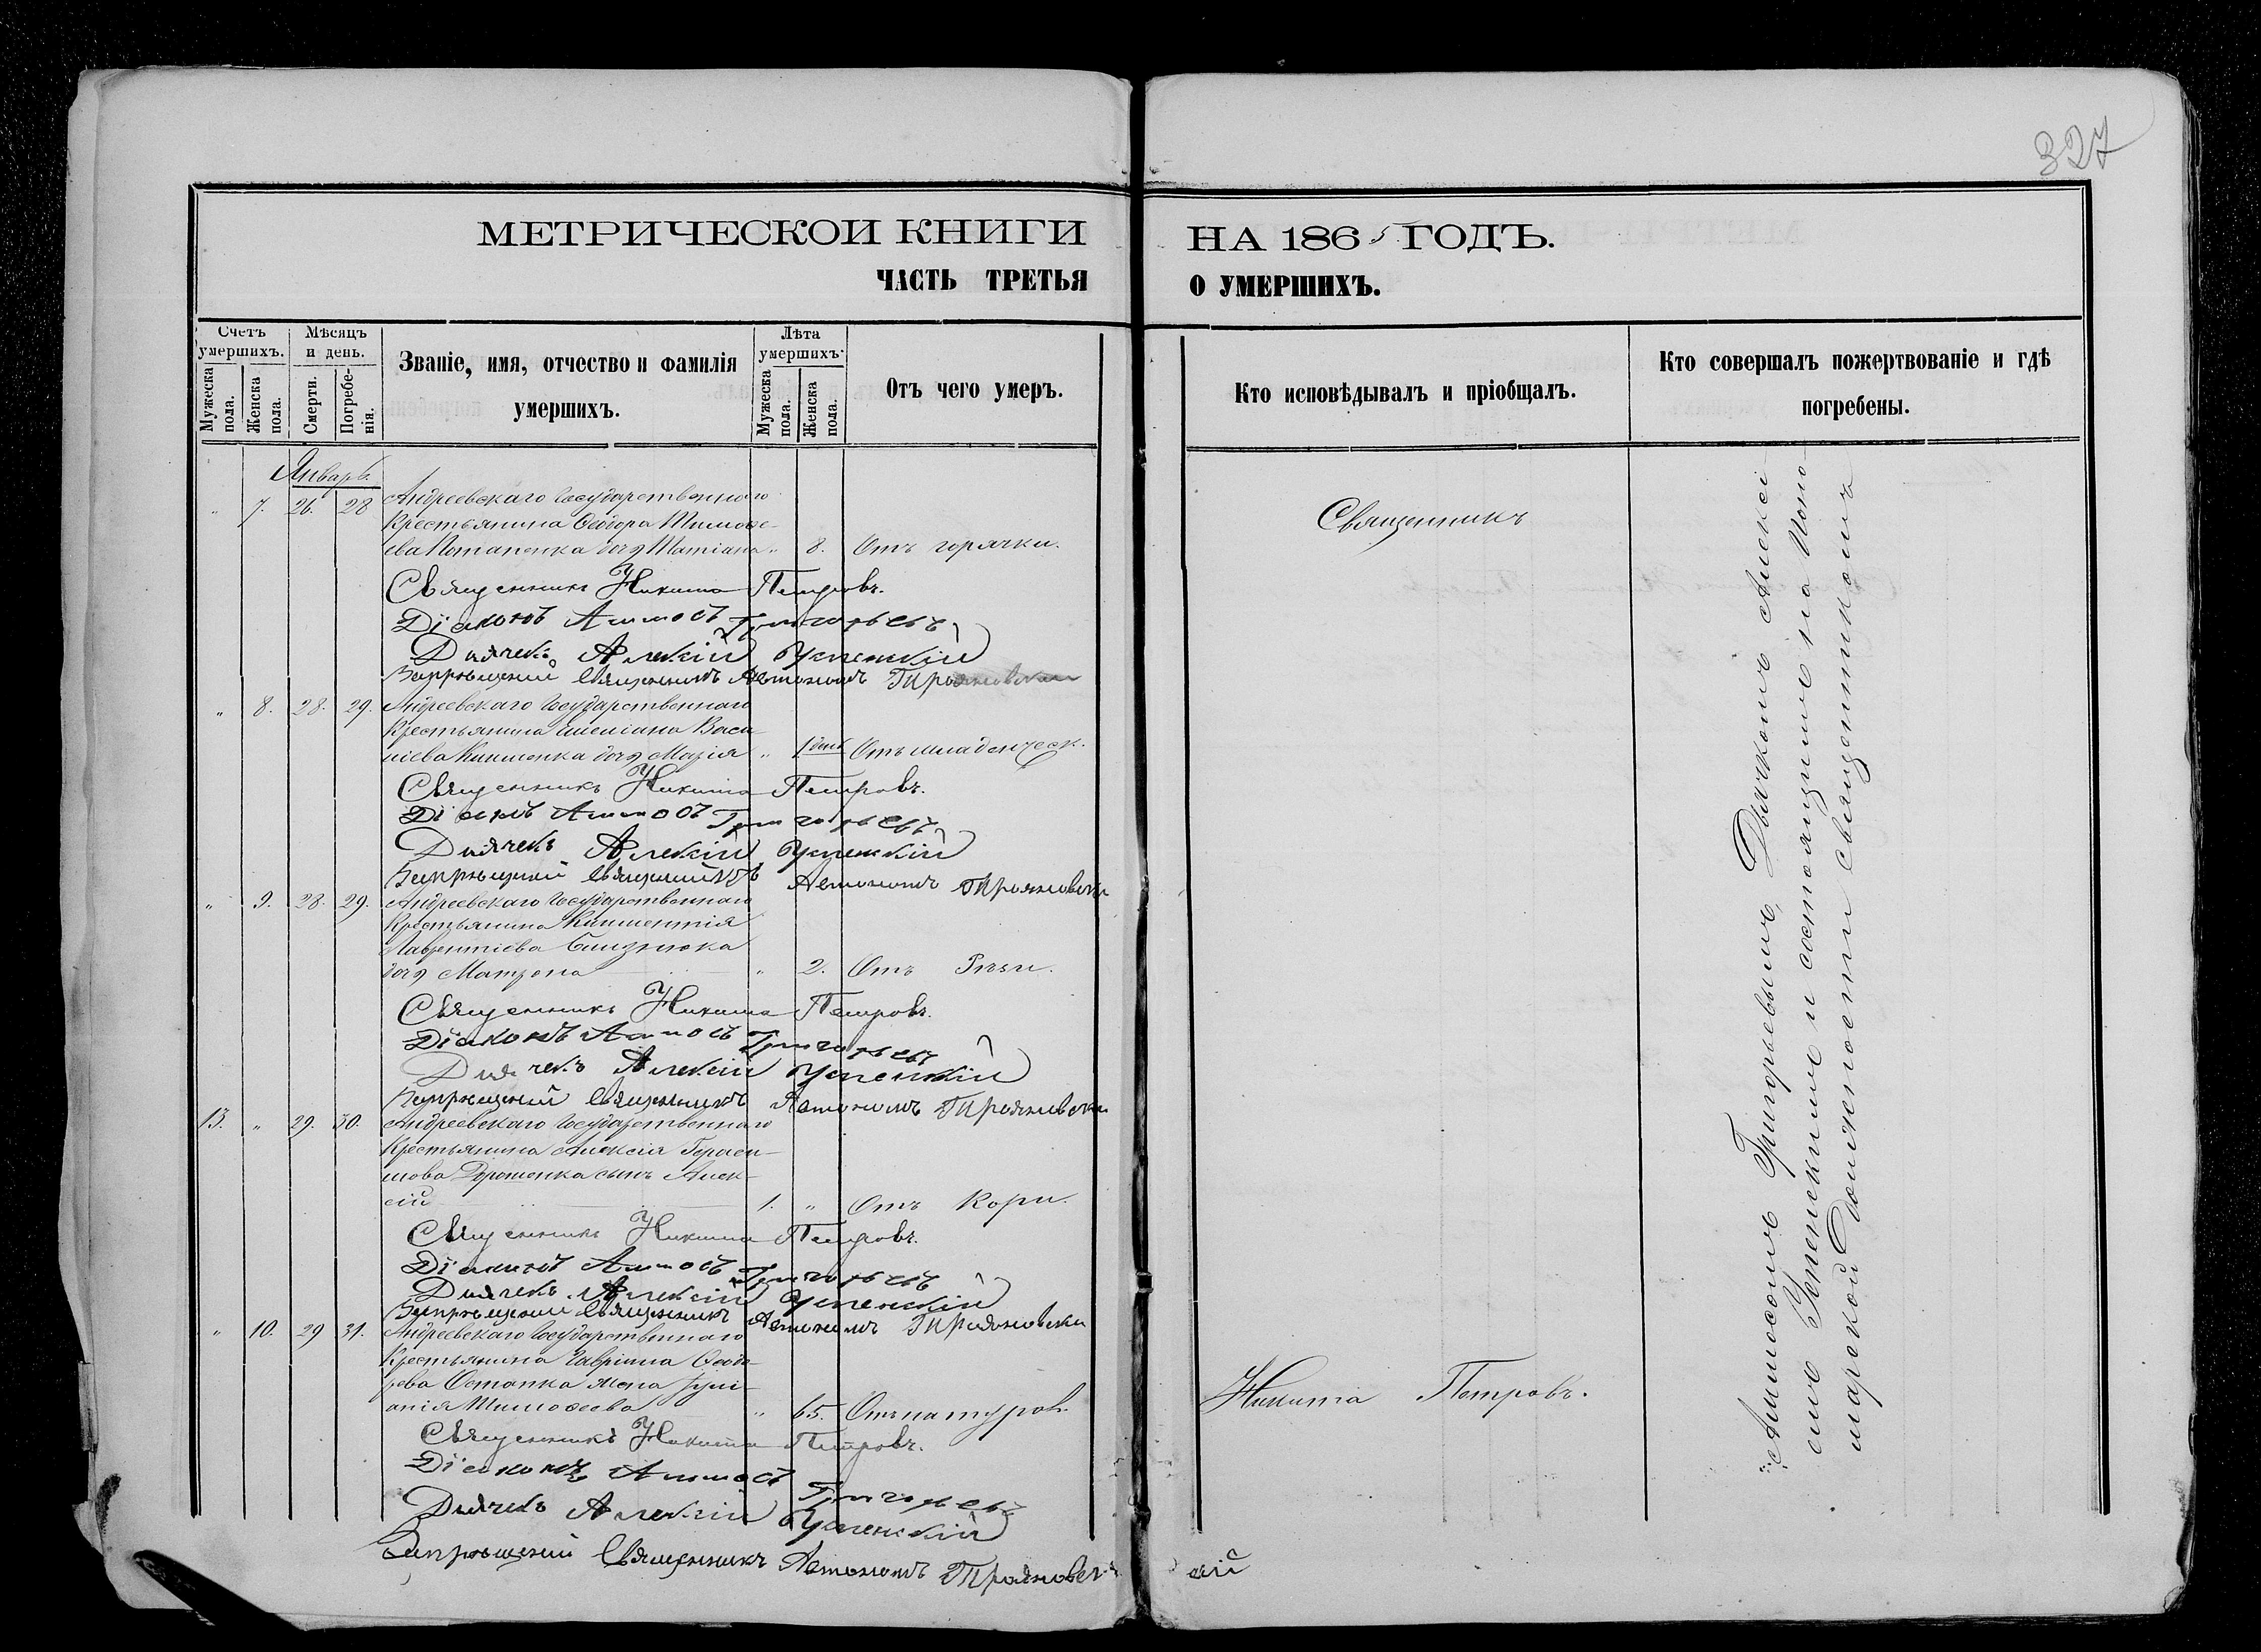 327
МЕТРИЧЕСКОЙ КНИГИ НА 1865 ГОДЪ.
ЧАСТЬ ТРЕТЬЯ О УМЕРШИХЪ.
Счетъ умершихъ.
Мужеска пола.
Женска пола.
Мѣсяцъ и день.
Смерти.
Погребенія.
Званіе, имя, отчество и фамилія умершихъ.
Лѣта умершихъ.
Мужеска пола.
Женска пола.
Отъ чего умеръ.
Кто исповѣдывалъ и пріобщалъ.
Кто совершалъ пожертвованіе и гдѣ погребены.
Январь.
" 7. 26. 28 Андреевскаго Государственнаго
Крестьянина Ѳеодора Тимоѳе-
ева Потапенка дочь Татіана " 8. Отъ горячки.
Священникъ Никита Петровъ.
Діаконъ Аммосъ Григорьевъ
Дьячекъ Алексій Успенскій
Запрѣщеній Священникъ Автономъ Трояновскій
" 8. 28. 29. Андреевскаго Государственнаго
Крестьянина Емеліана Васи-
ліева дочь Марія " 1 день Отъ младенческ.
Священникъ Никита Петровъ.
Діаконъ Аммосъ Григорьевъ
Дьячекъ Алексій Успенскій
Запрѣщеній Священникъ Автономъ Трояновскі
" 9. 28. 29. Андреевскаго Государственнаго
Крестьянина Климентія
Лаврентіева
дочь Матрона " 2. Отъ
Священникъ Никита Петровъ.
Діаконъ Аммосъ Григорьевъ
Дьячекъ Алексій Успенскій
Запрѣщеній Священникъ Автономъ Трояновскі
13. " 29. 30. Андреевскаго Государственнаго
Крестьянина Алексія Гераси-
мова Дорошенка сынъ Алек-
сій 1. " Отъ Кори.
Священникъ Никита Петровъ.
Діаконъ Аммосъ Григорьевъ
Дьячекъ Алексій Успенскій
Запрѣщеній Священникъ Автономъ Трояновски
" 10. 29 31. Андреевскаго Государственнаго
Крестьянина Гавріила Ѳеодо-
рова Остапка жена Іулі-
анія Тимоѳеева " 65. Отъ натуров.
Священникъ Никита Петровъ.
Діаконъ Аммосъ Григорьевъ
Дьячекъ Алексій Успенскій
Запрѣщеній Священникъ Автономъ Трояновскій
Священникъ
Никита Петровъ.
Аммосомъ Григорьевымъ, Дьячкомъ Алексі-
емъ Успенскимъ и состоящимъ на Поно-
марской Должности Священникомъ